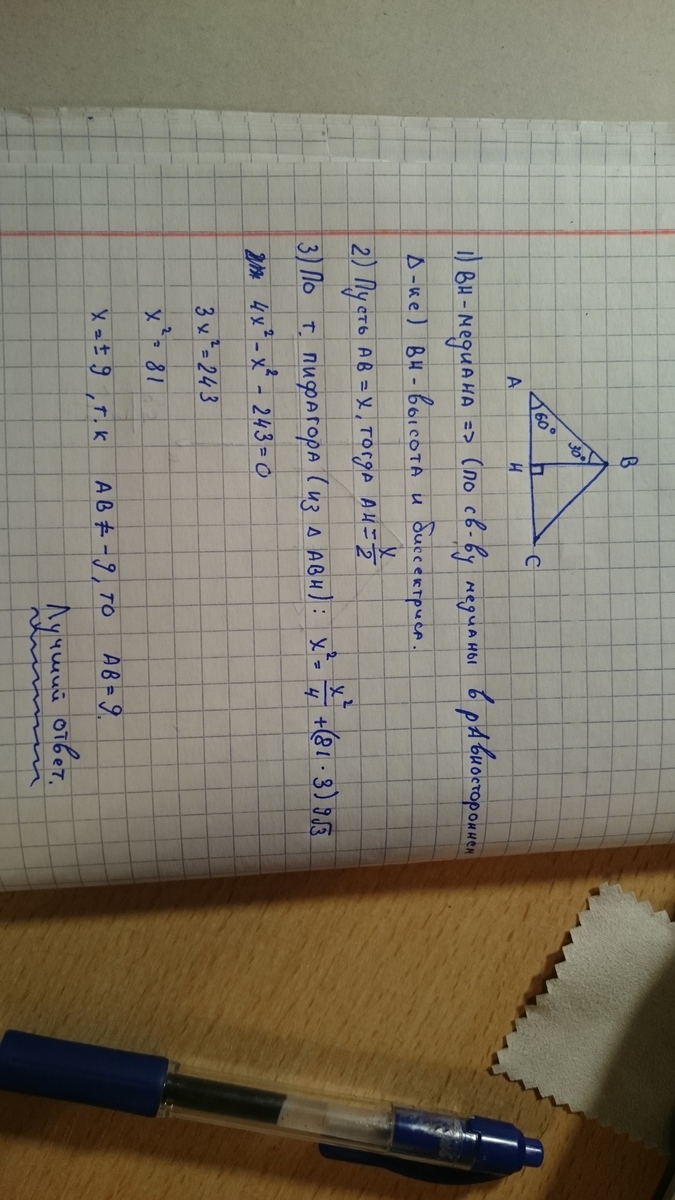 B
30°
60°
A
H
C
1) BH - медиана => (по св-ву медианы в равностороннем
Δ-ке) BH - высота и биссектриса.
2) Пусть AB = x, тогда AH = x/2
3) По т. пифагора (из Δ ABH): x² = x²/4 + (81 · 3) 9√3
4x² - x² - 243 = 0
3x² = 243
x² = 81
x = ± 9, т.к AB ≠ - 9, то AB = 9.
Лучший ответ.